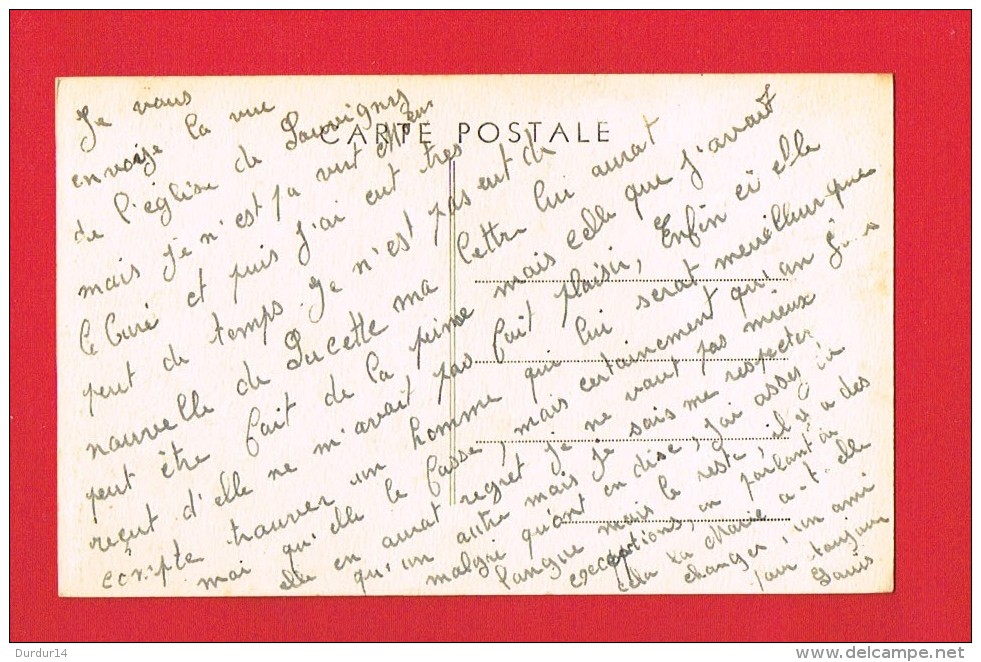 CARTE POSTALE
Je vous
envoije la vue
de l'église de Souvigny
mais je n'est pa vut Mr
le Curé et puis j'ai eut tres
peut de temps. Je n'est pas eut de
nouvelle de Lucette ma lettre lui aurat
peut être fait de la peine mais celle que j'avait
reçut d'elle ne m'avait pas fait plaisir, Enfin ci elle
compte trouver un homme qui lui serat meuilleur que
moi qu'elle le fasse, mais certainement qu'un jour
elle en aurat regret je ne vaut pas mieux
qu'un autre mais je sais me respecter
malgré qu'ont en dise, j'ai assez de
langue mais le reste, il y a des
exceptions, en parlant de
cela la Marie a-t-elle
changer, un ami
pour toujour
Louis
Durdur14
delcampe.net